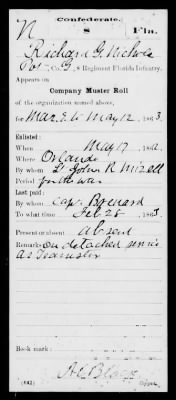 Confederate.
N 8 Fla.
Richard G. Nichols
Pvt, Co. G, 8 Regiment Florida Infantry.
Appears on
Company Muster Roll
of the organization named above,
for Mar. & to May 12, 1863.
Enlisted:
When May 17, 1862.
Where Orlando
By whom Lt John R Mizell
Period for the war
Last paid:
By whom Cap.
To what time Feb 28, 1863.
Present or absent Absent
Remarks: on detached service
as Teamster
Book mark:
(642) Copyist.